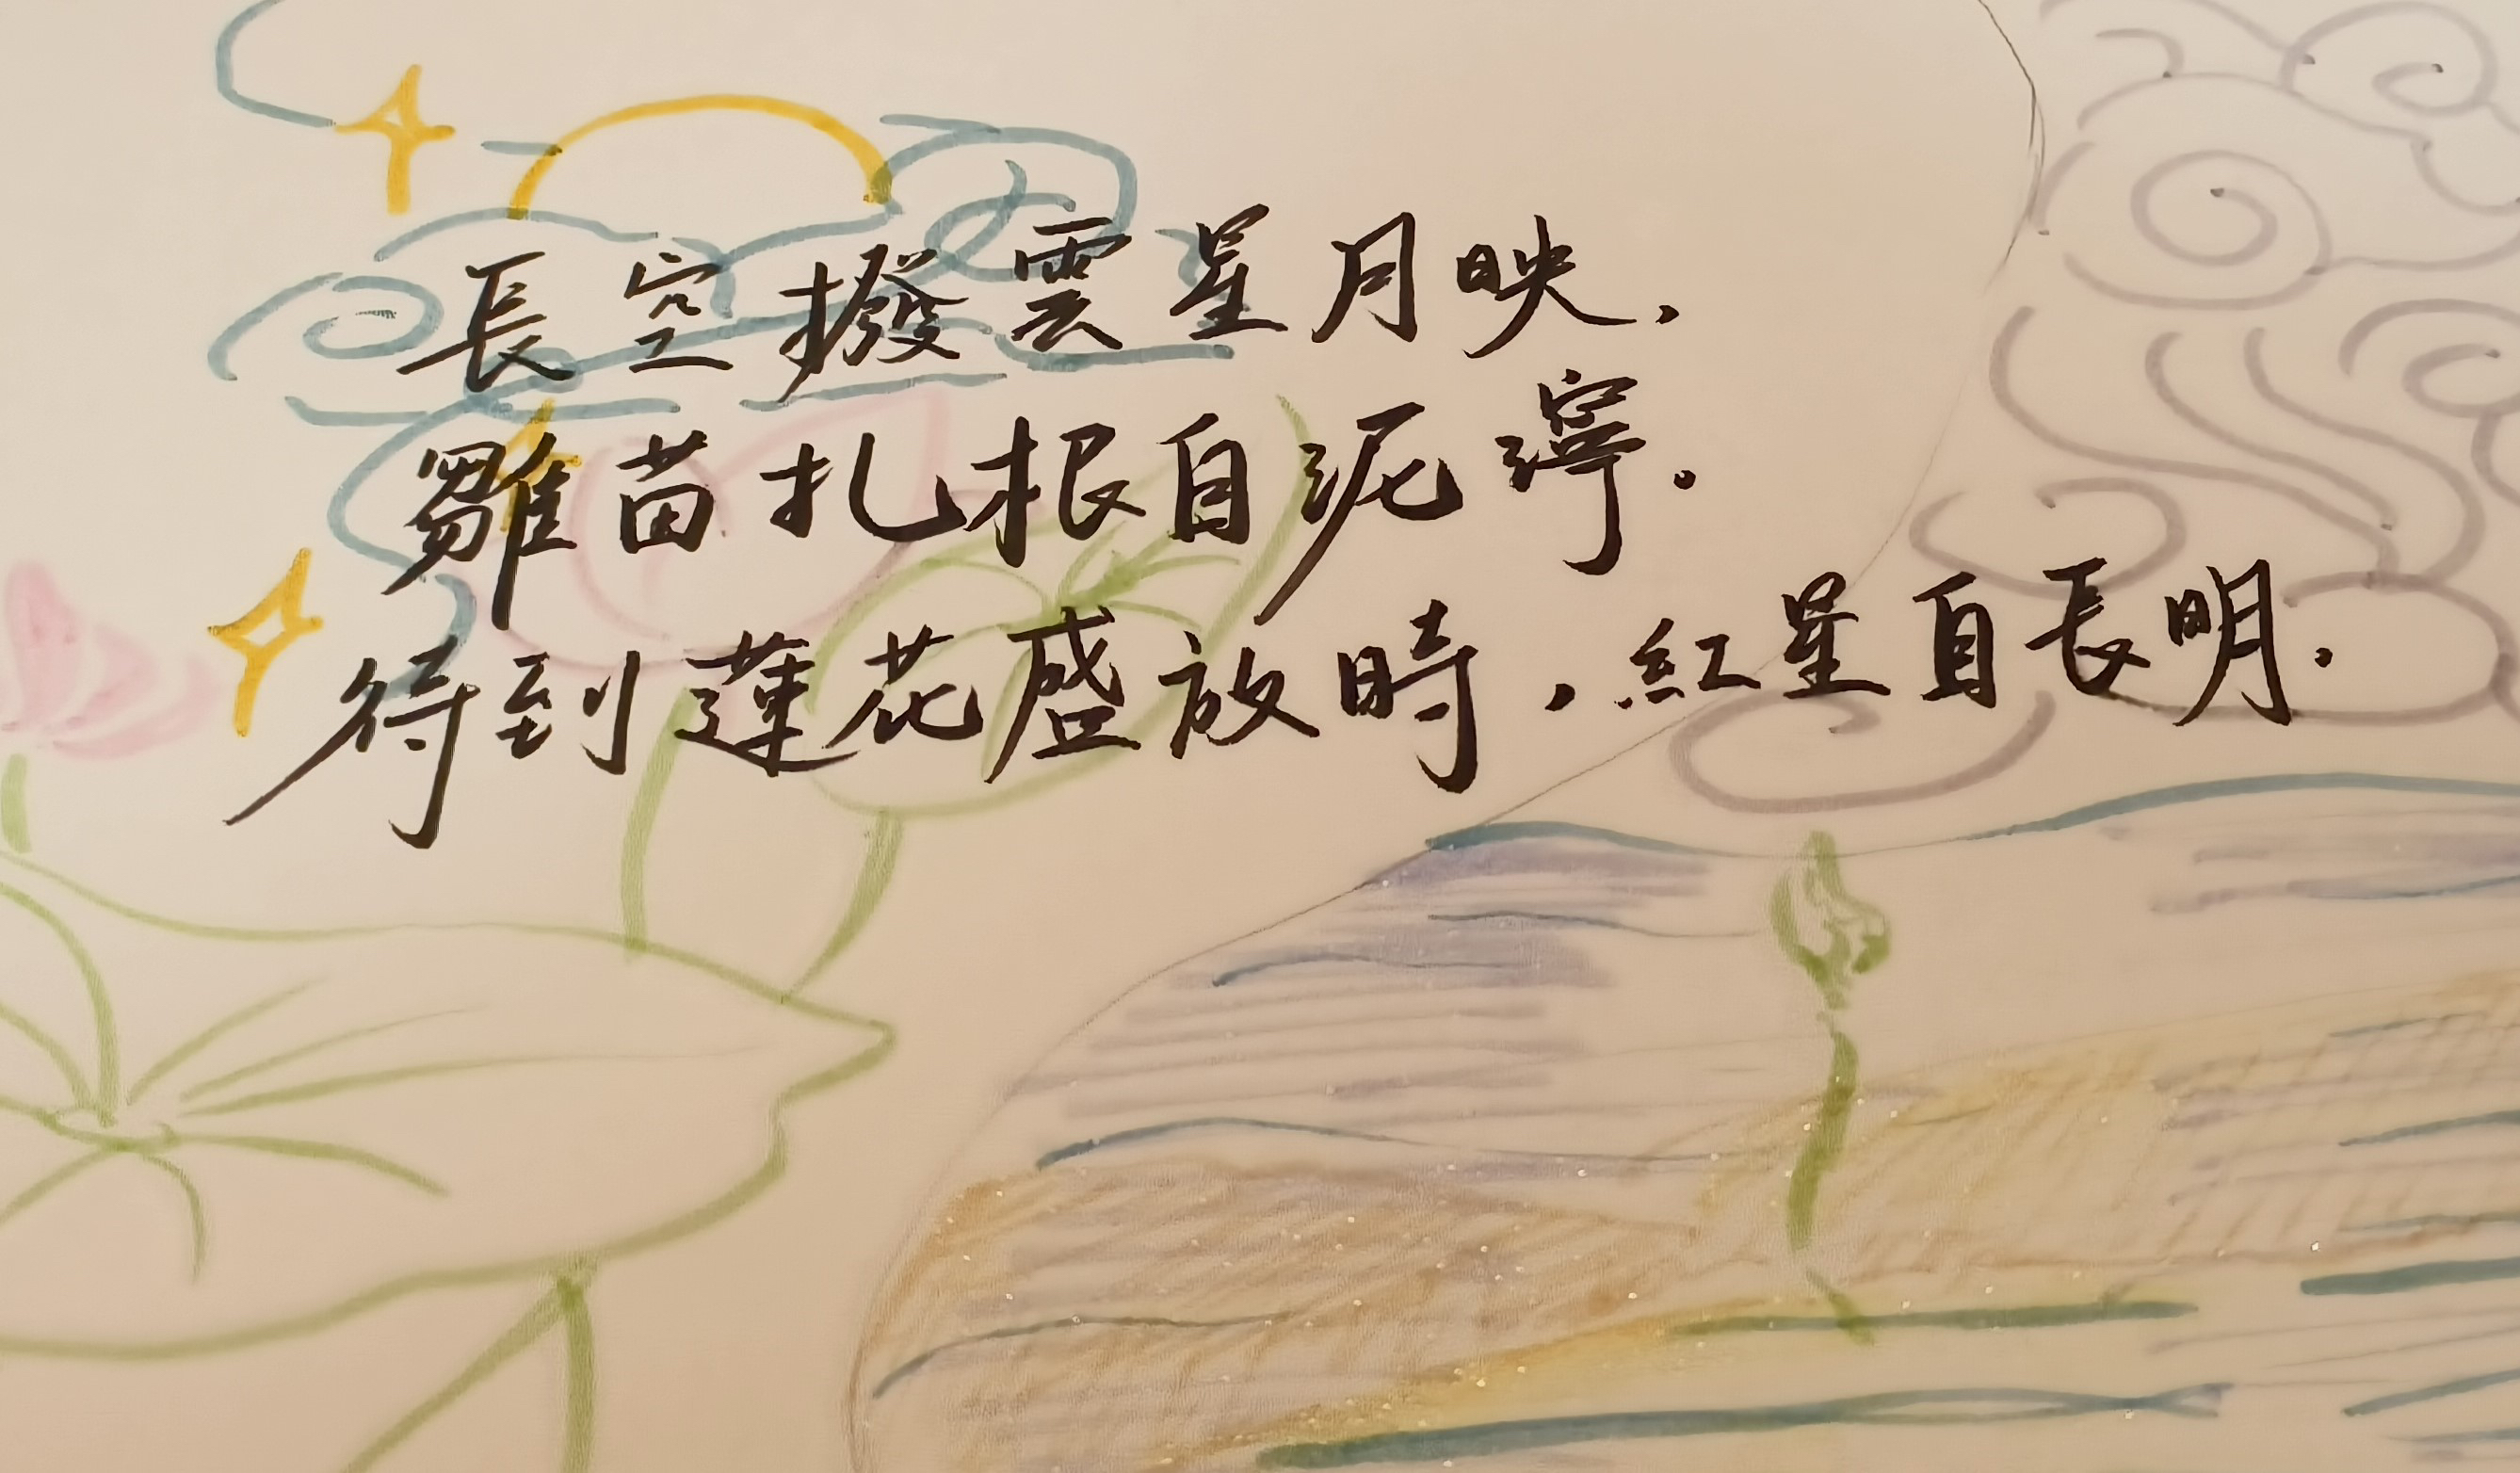 長空撥雲星月映，
雛苗扎根自泥濘。
待到蓮花盛放時，紅星自長明．